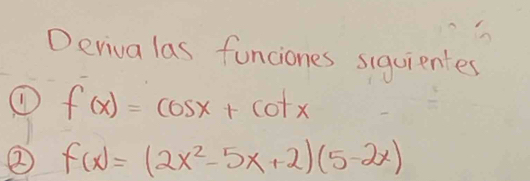 Deriva las funciones siguientes
① f(x) = cosx + cotx
② f(x) = (2x²-5x+2)(5-2x)